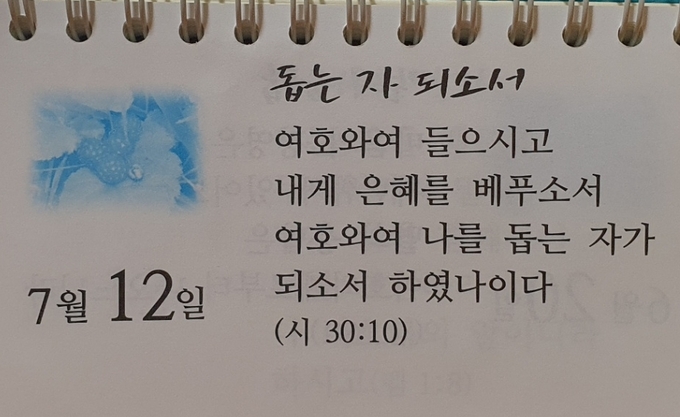 돕는 자 되소서
여호와여 들으시고
내게 은혜를 베푸소서
여호와여 나를 돕는 자가
되소서 하였나이다
(시 30:10)
7월 12일